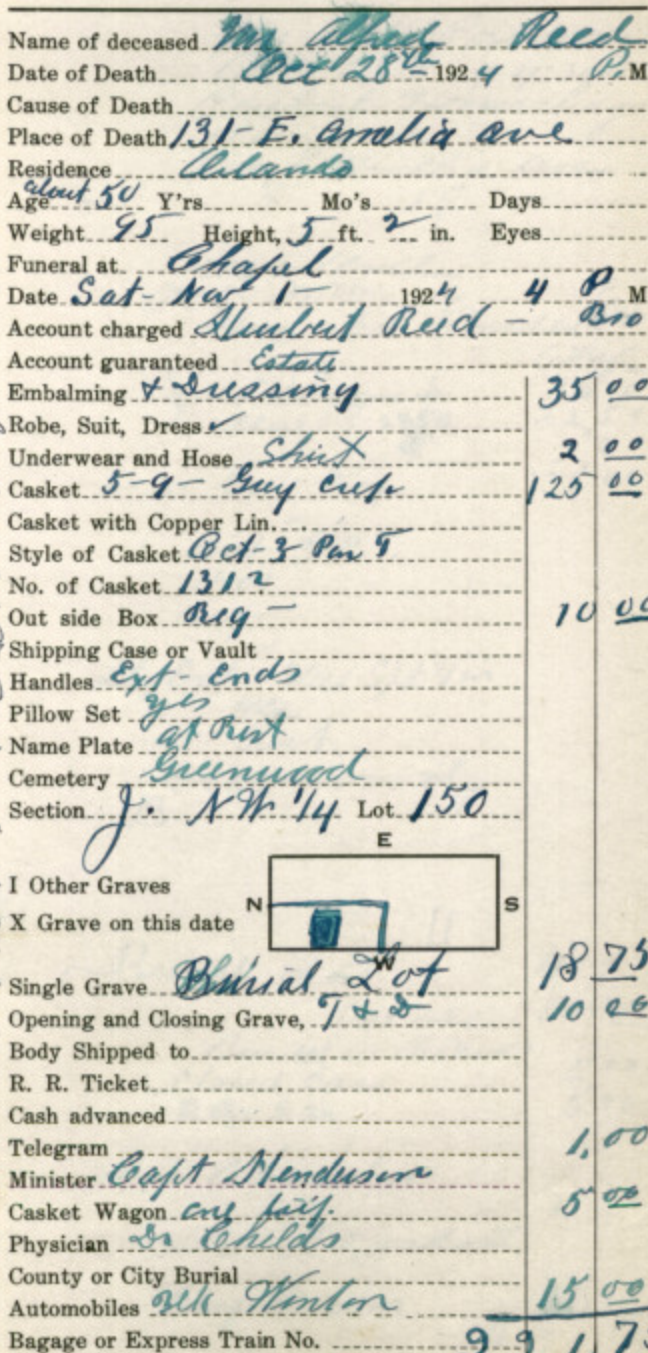 Name of deceased Mr. Alfred Reed
Date of Death Oct 28th 1924 P. M
Cause of Death
Place of Death 131- E. Amelia ave
Residence Orlando
Age about 50 Y'rs Mo's Days
Weight 95 Height, 5 ft. 2 in. Eyes
Funeral at Chapel
Date Sat- Nov 1- 1924 4 P M
Account charged Hurbert Reed - Bro
Account guaranteed Estate
Embalming & Dressing 35 00
Robe, Suit, Dress ✓
Underwear and Hose Shirt 2 00
Casket 5-9- Grey Crep. 125 00
Casket with Copper Lin.
Style of Casket Oct-3 Pan T
No. of Casket 1312
Out side Box Reg - 10 00
Shipping Case or Vault
Handles Ext- Ends
Pillow Set yes
Name Plate at Rest
Cemetery Greenwood
Section J. NW 1/4 Lot 150
E
I Other Graves N S
X Grave on this date
W
Single Grave Burial Lot 18 75
Opening and Closing Grave, T & D 10 00
Body Shipped to
R. R. Ticket
Cash advanced
Telegram 1.00
Minister Capt Henderson
Casket Wagon one 5 00
Physician Dr Childs
County or City Burial
Automobiles Winton 15 00
Bagage or Express Train No. 991 75